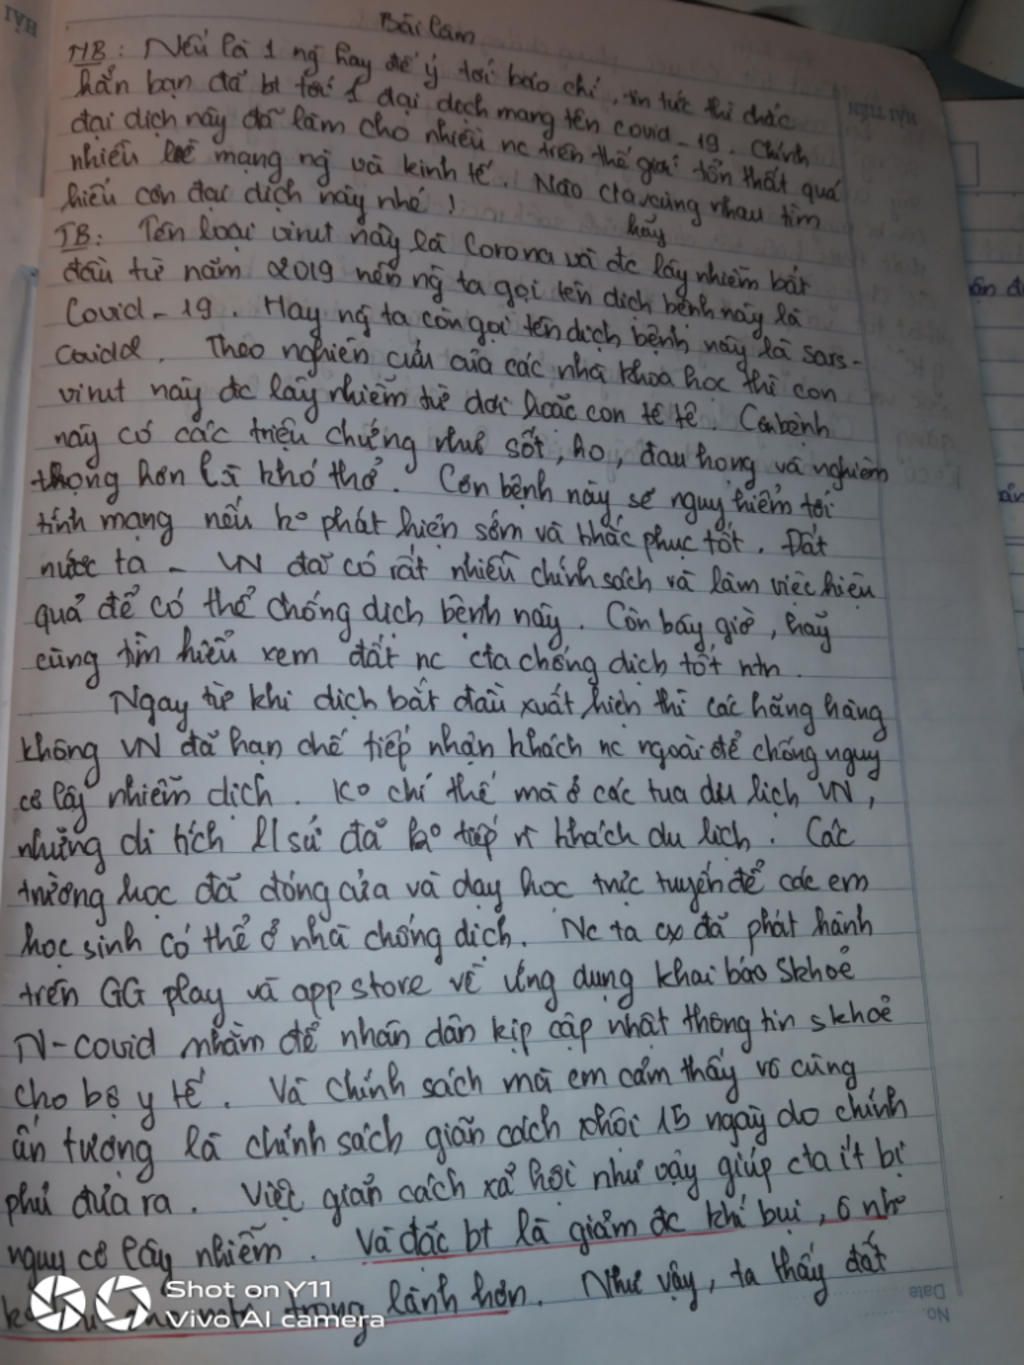 Bài làm
MB: Nếu là 1 ng hay để ý tới báo chí, tin tức thì chắc
hẳn bạn đã bt tới 1 đại dịch mang tên covid-19. Chính
đại dịch này đã làm cho nhiều nc trên thế giới tổn thất quá
nhiều về mạng ng và kinh tế. Nào cta cùng nhau tìm
hãy
hiểu cơn đại dịch này nhé!
TB: Tên loại virut này là Corona và đc lây nhiễm bắt
đầu từ năm 2019 nên ng ta gọi tên dịch bệnh này là
Covid-19. Hay ng ta còn gọi tên dịch bệnh này là sars-
. Theo nghiên cứu của các nhà khoa học thì con
virut này đc lây nhiễm từ dơi hoặc con tê tê. Cơn bệnh
này có các triệu chứng như sốt, ho, đau họng và nghiêm
trọng hơn là khó thở. Cơn bệnh này sẽ nguy hiểm tới
tính mạng nếu ko phát hiện sớm và khắc phục tốt. Đất
nước ta - VN đã có rất nhiều chính sách và làm việc hiệu
quả để có thể chống dịch bệnh này. Còn bây giờ, hãy
cùng tìm hiểu xem đất nc cta chống dịch tốt ntn.
Ngay từ khi dịch bắt đầu xuất hiện thì các hãng hàng
không VN đã hạn chế tiếp nhận khách nc ngoài để chống nguy
cơ lây nhiễm dịch. Ko chỉ thế mà ở các tua du lịch VN,
những di tích lsử đã ko tiếp khách du lịch. Các
trường học đã đóng cửa và dạy học trực tuyến để các em
học sinh có thể ở nhà chống dịch. Nc ta cx đã phát hành
trên GG play và appstore về ứng dụng khai báo skhoẻ
N-covid nhằm để nhân dân kịp cập nhật thông tin skhoẻ
cho bộ y tế. Và chính sách mà em cảm thấy vô cùng
ấn tượng là chính sách giãn cách xhội 15 ngày do chính
phủ đưa ra. Việc giãn cách xã hội như vậy giúp cta ít bị
nguy cơ lây nhiễm. Và đặc bt là giảm đc khí bụi, ô nh
trong lành hơn. Như vậy, ta thấy đất
Shot on Y11
Vivo AI camera
No.
Date